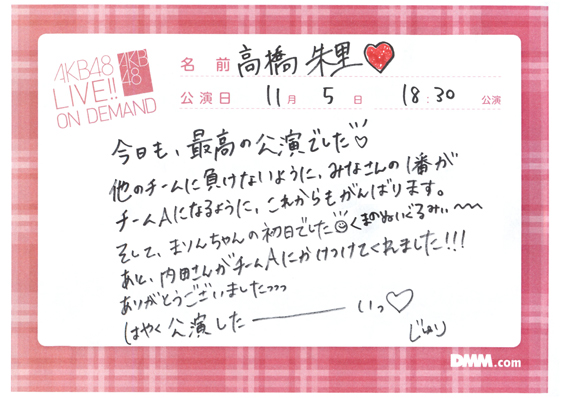 AKB48
LIVE!!
ON DEMAND
AKB
48
名前 高橋 朱里
公演日 11月 5日 18:30 公演
今日も、最高の公演でした♡
他のチームに負けないように、みなさんの1番が
チームAになるように、これからもがんばります。
そして、まりんちゃんの初日でした くまのぬいぐるみぃ〜〜
あと、内田さんがチームAにかけつけてくれました!!!
ありがとうございましたっっっ
はやく公演した――――いっ♡
じゅり
DMM.com